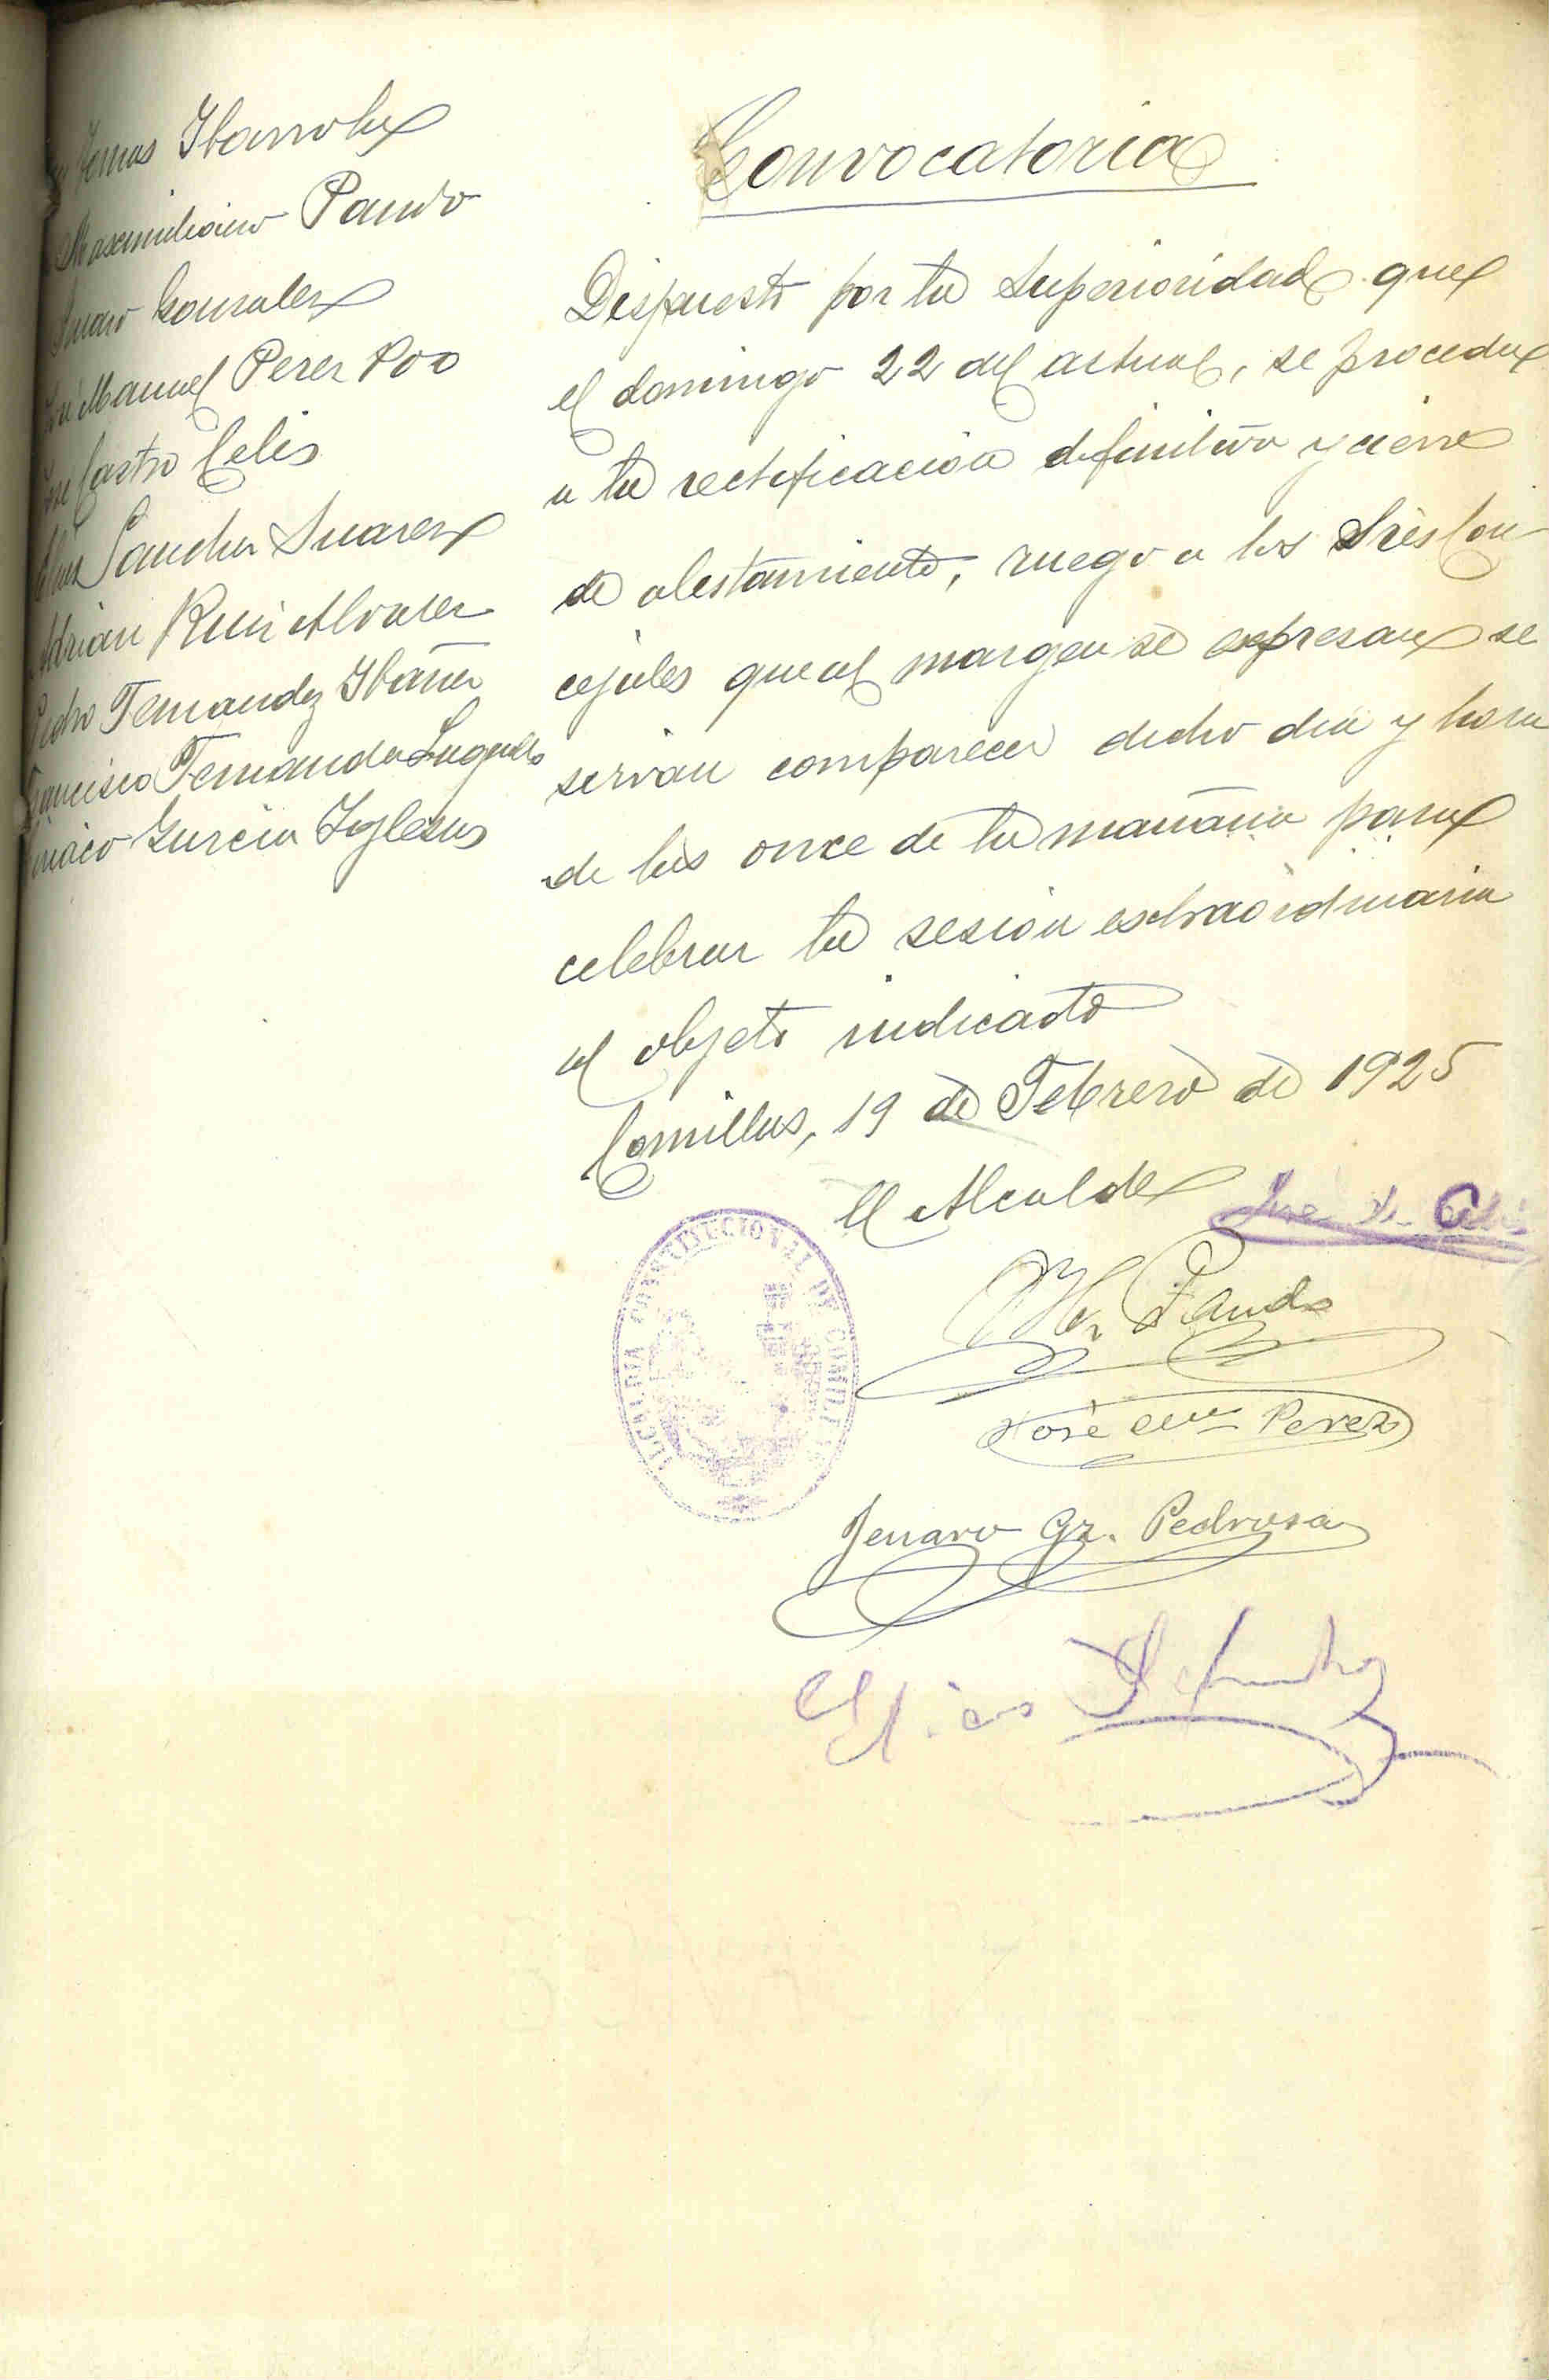 Tomas Ibarrola
Maximiliano Pando
Jenaro Gonzalez
José Manuel Perez Poo
Jose Castro Celis
Elias Sanchez Suarez
Adrian Ruiz Alvarez
Pedro Fernandez Ibañez
Francisco Fernandez Lugueds
Garcia Iglesias
Convocatoria
Dispuesto por la Superioridad que
el domingo 22 del actual, se proceda
a la rectificacion definitiva y cierre
de alistamiento, ruego a los Sres Con
cejales que al margen se expresan se
servan comparecer dicho dia y hora
de las once de la mañana para
celebrar la sesion extraordinaria
al objeto indicado
Comillas, 19 de Febrero de 1925
El Alcalde
José
M. Pando
José Perez
Jenaro Gz. Pedrosa
Elias
ALCALDIA CONSTITUCIONAL DE COMILLAS